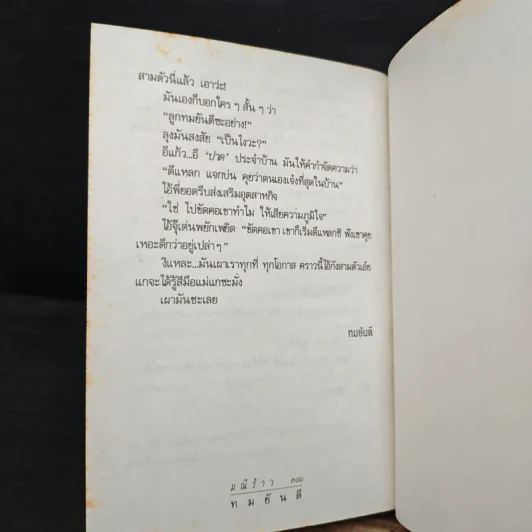 สามตัวนี่แล้ว เอาว่ะ!
มันเองก็บอกใคร ๆ สั้น ๆ ว่า
“ลูกทมยันตีซะอย่าง!”
ลุงมันสงสัย “เป็นไงวะ?”
อีแก้ว...อี ‘ปาด’ ประจำบ้าน มันให้คำกำจัดความว่า
“ตีแหลก แจกบ่น คุยว่าตนเองเจ๋งที่สุดในบ้าน”
ไอ้พี่ยอดรีบส่งเสริมอุตสาหกิจ
“ใช่ ไปขัดคอเขาทำไม ให้เสียความภูมิใจ”
ไอ้จุ๊เต่นพยักเพยิด “ขัดคอเขา เขาก็เริ่มตีแหลกซิ ฟังเขาคุย
เหอะดีกว่าอยู่เปล่า ๆ”
งิแหละ...มันเผาเราทุกที่ ทุกโอกาส คราวนี้ไอ้กังสามตัวเอ๋ย
แกจะได้รู้สีมือแม่แกซะมั่ง
เผามันซะเลย
ทมยันตี
มณีร้าว ๓๐๐
ทมยันตี